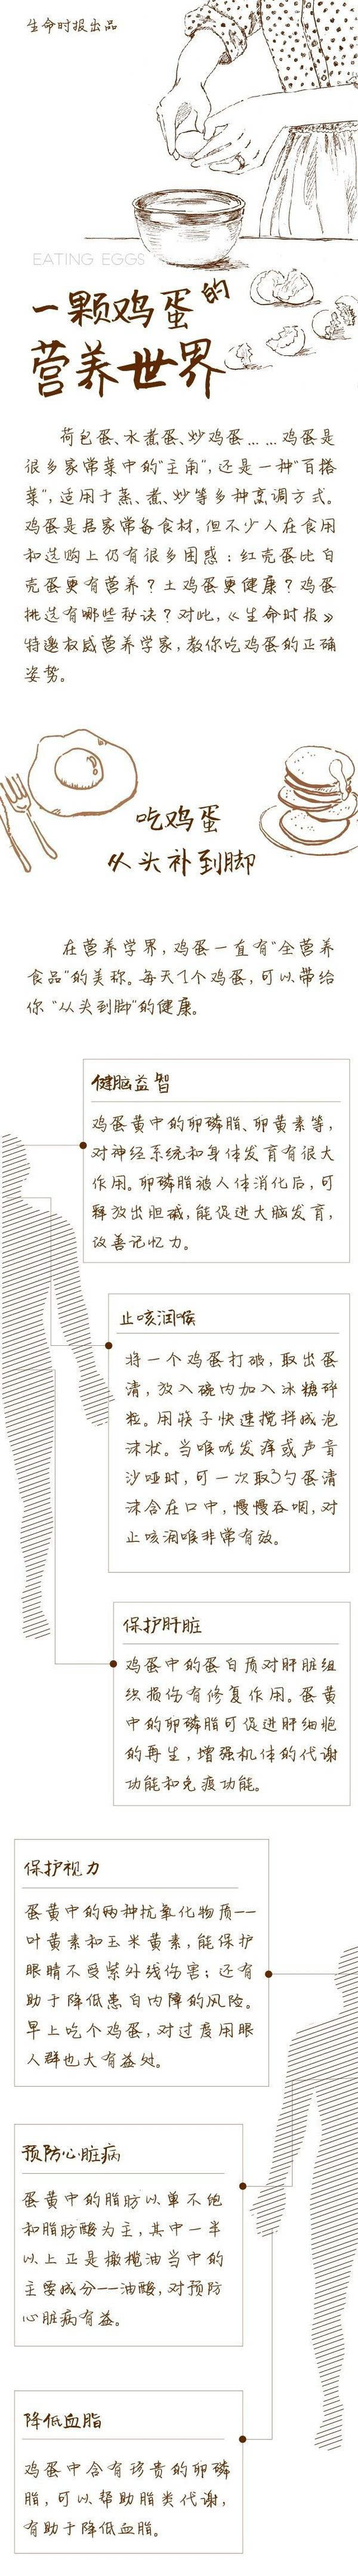 生命时报出品
EATING EGGS
一颗鸡蛋的
营养世界
荷包蛋、水煮蛋、炒鸡蛋……鸡蛋是
很多家常菜中的“主角”,还是一种“百搭
菜”,适用于蒸、煮、炒等多种烹调方式。
鸡蛋是居家常备食材,但不少人在食用
和选购上仍有很多困惑:红壳蛋比白
壳蛋更有营养?土鸡蛋更健康?鸡蛋
挑选有哪些秘诀?对此,《生命时报》
特邀权威营养学家,教你吃鸡蛋的正确
姿势。
吃鸡蛋
从头补到脚
在营养学界,鸡蛋一直有“全营养
食品”的美称。每天1个鸡蛋,可以带给
你“从头到脚”的健康。
健脑益智
鸡蛋黄中的卵磷脂、卵黄素等,
对神经系统和身体发育有很大
作用。卵磷脂被人体消化后,可
释放出胆碱,能促进大脑发育,
改善记忆力。
止咳润喉
将一个鸡蛋打破,取出蛋
清,放入碗内加入冰糖碎
粒。用筷子快速搅拌成泡
沫状。当喉咙发痒或声音
沙哑时,可一次取3勺蛋清
沫含在口中,慢慢吞咽,对
止咳润喉非常有效。
保护肝脏
鸡蛋中的蛋白质对肝脏组
织损伤有修复作用。蛋黄
中的卵磷脂可促进肝细胞
的再生,增强机体的代谢
功能和免疫功能。
保护视力
蛋黄中的两种抗氧化物质——
叶黄素和玉米黄素,能保护
眼睛不受紫外线伤害;还有
助于降低患白内障的风险。
早上吃个鸡蛋,对过度用眼
人群也大有益处。
预防心脏病
蛋黄中的脂肪以单不饱
和脂肪酸为主,其中一半
以上正是橄榄油当中的
主要成分——油酸,对预防
心脏病有益。
降低血脂
鸡蛋中含有珍贵的卵磷
脂,可以帮助脂类代谢,
有助于降低血脂。